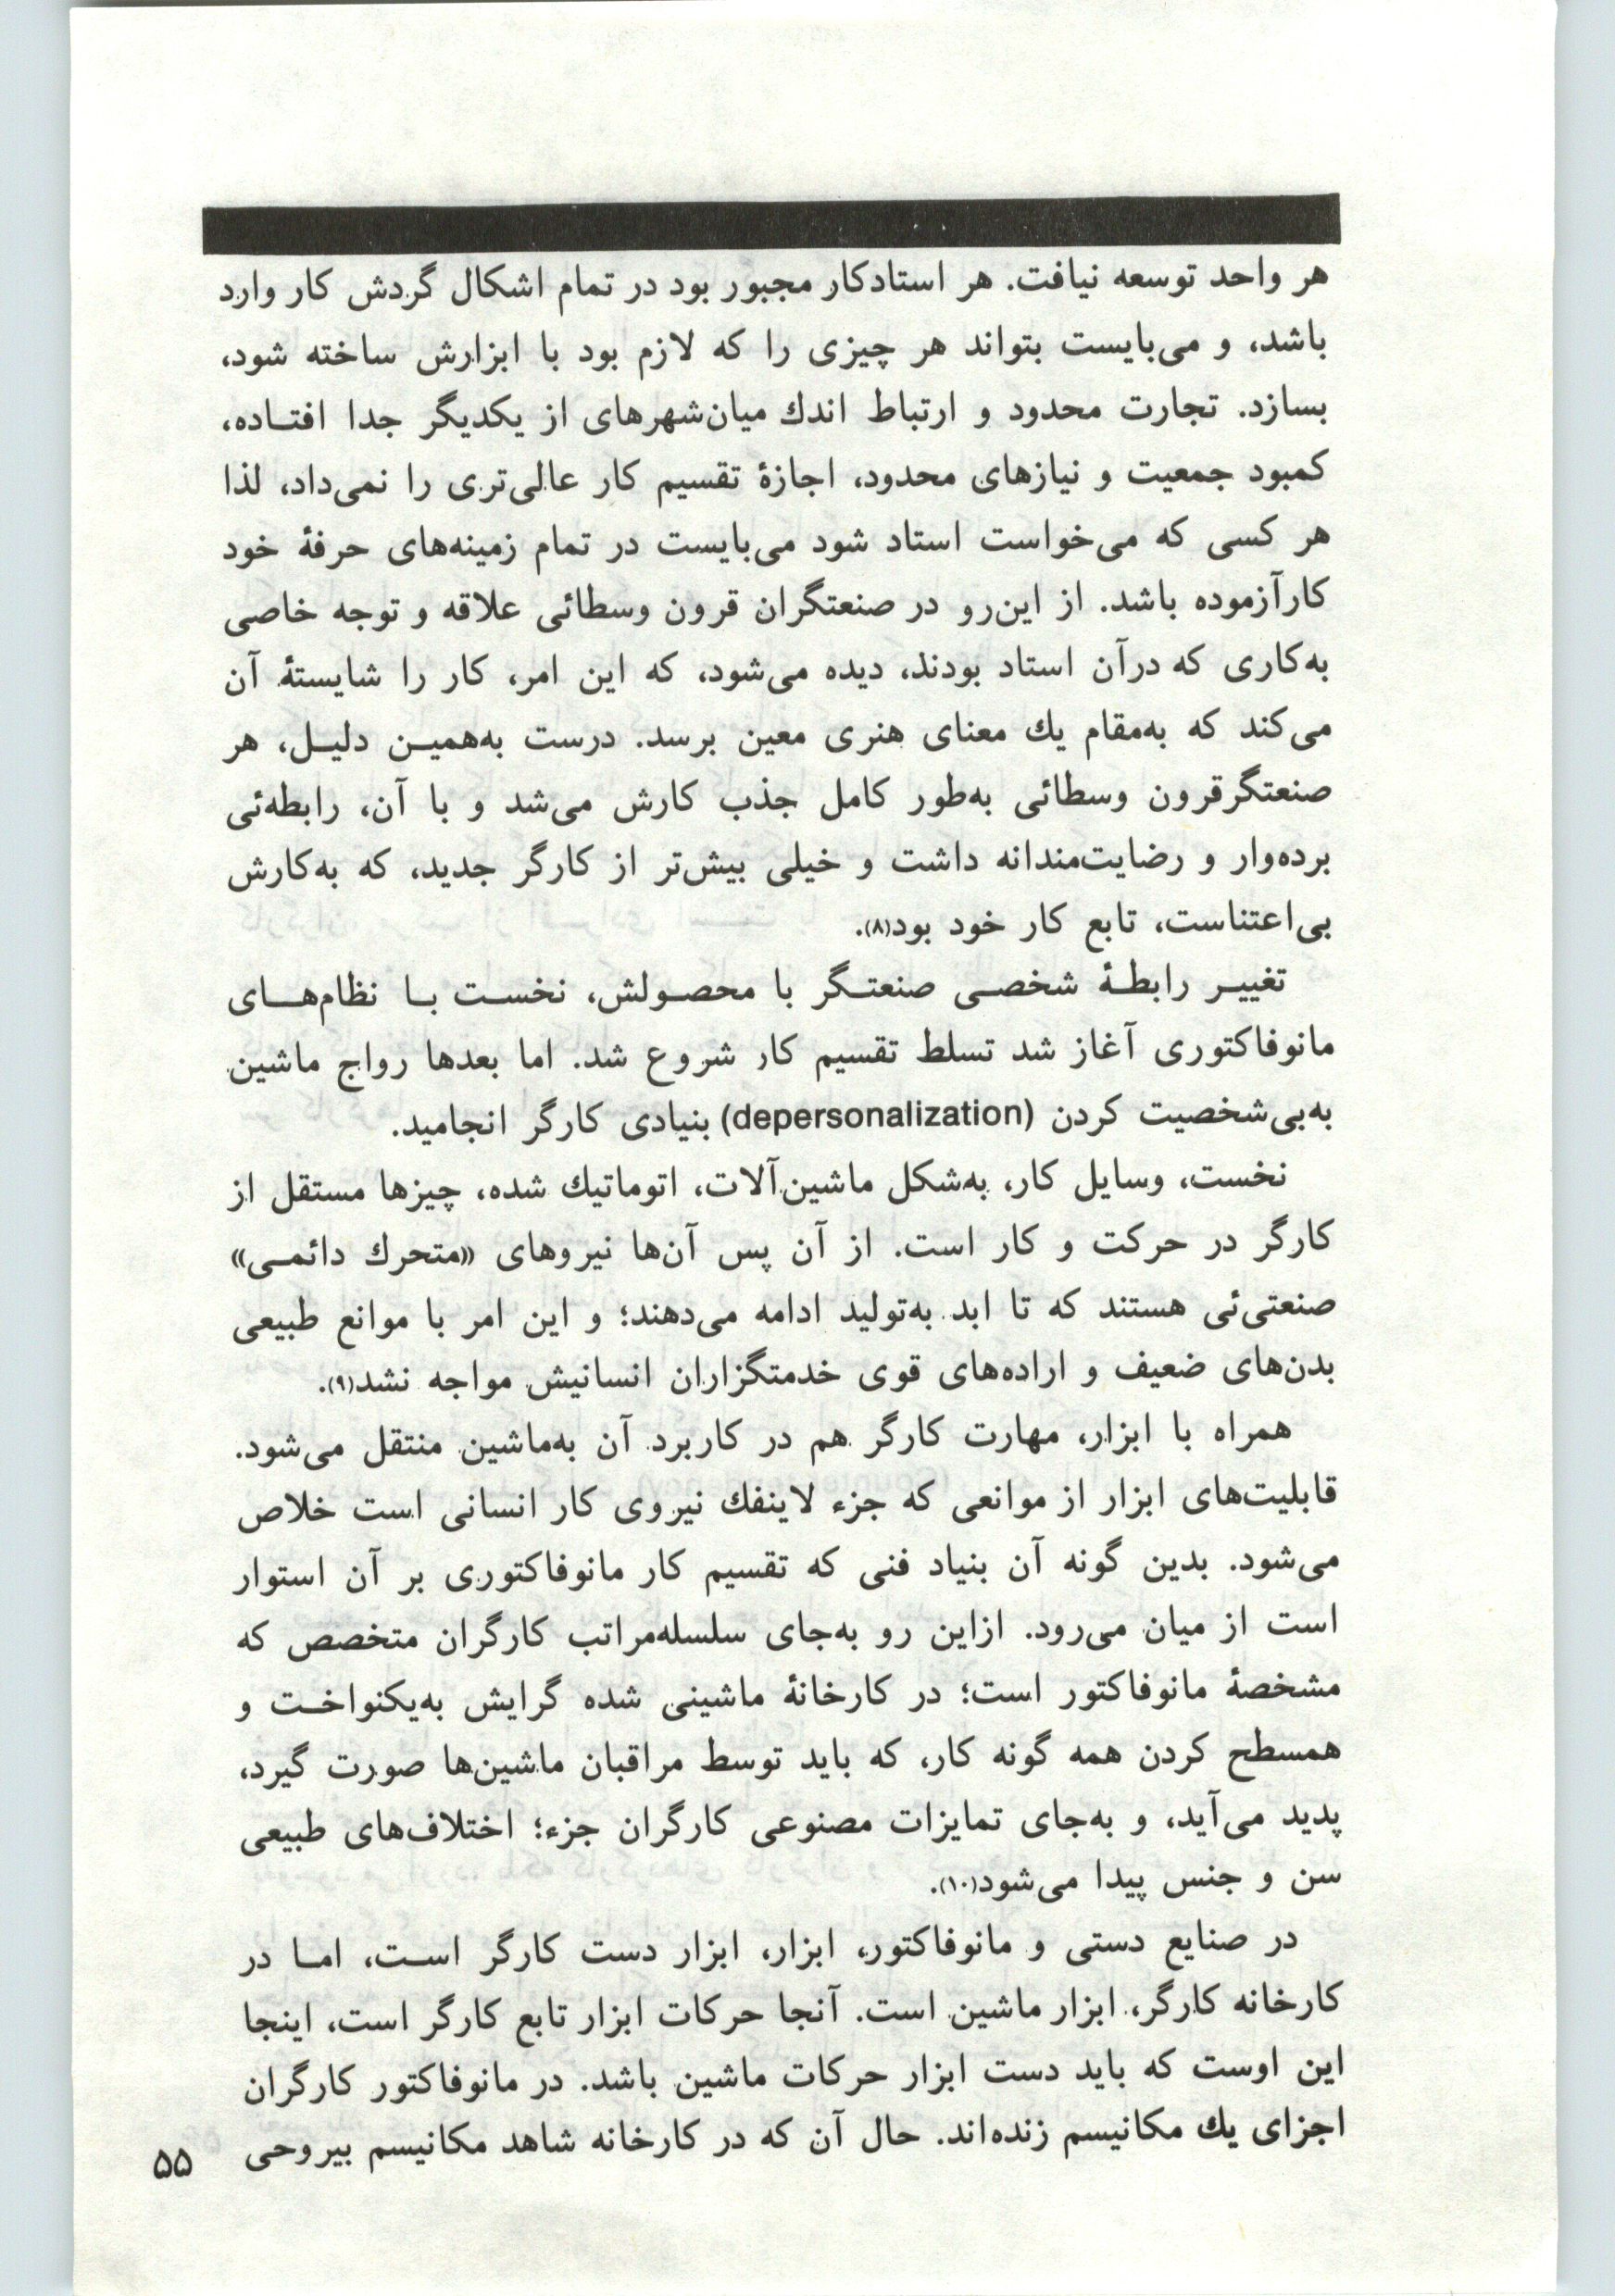 هر واحد توسعه نیافت. هر استادکار مجبور بود در تمام اشکال گردش کار وارد
باشد، و می‌بایست بتواند هر چیزی را که لازم بود با ابزارش ساخته شود،
بسازد. تجارت محدود و ارتباط اندك میان‌شهرهای از یکدیگر جدا افتـاده،
کمبود جمعیت و نیازهای محدود، اجازهٔ تقسیم کار عالی‌تری را نمی‌داد، لذا
هر کسی که می‌خواست استاد شود می‌بایست در تمام زمینه‌های حرفهٔ خود
کارآزموده باشد. از این‌رو در صنعتگران قرون وسطائی علاقه و توجه خاصی
به‌کاری که درآن استاد بودند، دیده می‌شود، که این امر، کار را شایستهٔ آن
می‌کند که به‌مقام یك معنای هنری معین برسد. درست به‌همیـن دلیـل، هر
صنعتگرقرون وسطائی به‌طور کامل جذب کارش می‌شد و با آن، رابطه‌ئی
برده‌وار و رضایت‌مندانه داشت و خیلی بیش‌تر از کارگر جدید، که به‌کارش
بی‌اعتناست، تابع کار خود بود(۸).
تغییـر رابطـهٔ شخصـی صنعتـگر با محصـولش، نخسـت بـا نظام‌هـای
مانوفاکتوری آغاز شد تسلط تقسیم کار شروع شد. اما بعدها رواج ماشین
به‌بی‌شخصیت کردن (depersonalization) بنیادی کارگر انجامید.
نخست، وسایل کار، به‌شکل ماشین‌آلات، اتوماتیك شده، چیزها مستقل از
کارگر در حرکت و کار است. از آن پس آن‌ها نیروهای «متحرك دائمـی»
صنعتی‌ئی هستند که تا ابد به‌تولید ادامه می‌دهند؛ و این امر با موانع طبیعی
بدن‌های ضعیف و اراده‌های قوی خدمتگزاران انسانیش مواجه نشد(۹).
همراه با ابزار، مهارت کارگر هم در کاربرد آن به‌ماشین منتقل می‌شود.
قابلیت‌های ابزار از موانعی که جزء لاینفك نیروی کار انسانی است خلاص
می‌شود. بدین گونه آن بنیاد فنی که تقسیم کار مانوفاکتوری بر آن استوار
است از میان می‌رود. ازاین رو به‌جای سلسله‌مراتب کارگران متخصص که
مشخصهٔ مانوفاکتور است؛ در کارخانهٔ ماشینی شده گرایش به‌یکنواخـت و
همسطح کردن همه گونه کار، که باید توسط مراقبان ماشین‌ها صورت گیرد،
پدید می‌آید، و به‌جای تمایزات مصنوعی کارگران جزء؛ اختلاف‌های طبیعی
سن و جنس پیدا می‌شود(۱۰).
در صنایع دستی و مانوفاکتور، ابزار، ابزار دست کارگر اسـت، امـا در
کارخانه کارگر، ابزار ماشین است. آنجا حرکات ابزار تابع کارگر است، اینجا
این اوست که باید دست ابزار حرکات ماشین باشد. در مانوفاکتور کارگران
اجزای یك مکانیسم زنده‌اند. حال آن که در کارخانه شاهد مکانیسم بیروحی
۵۵